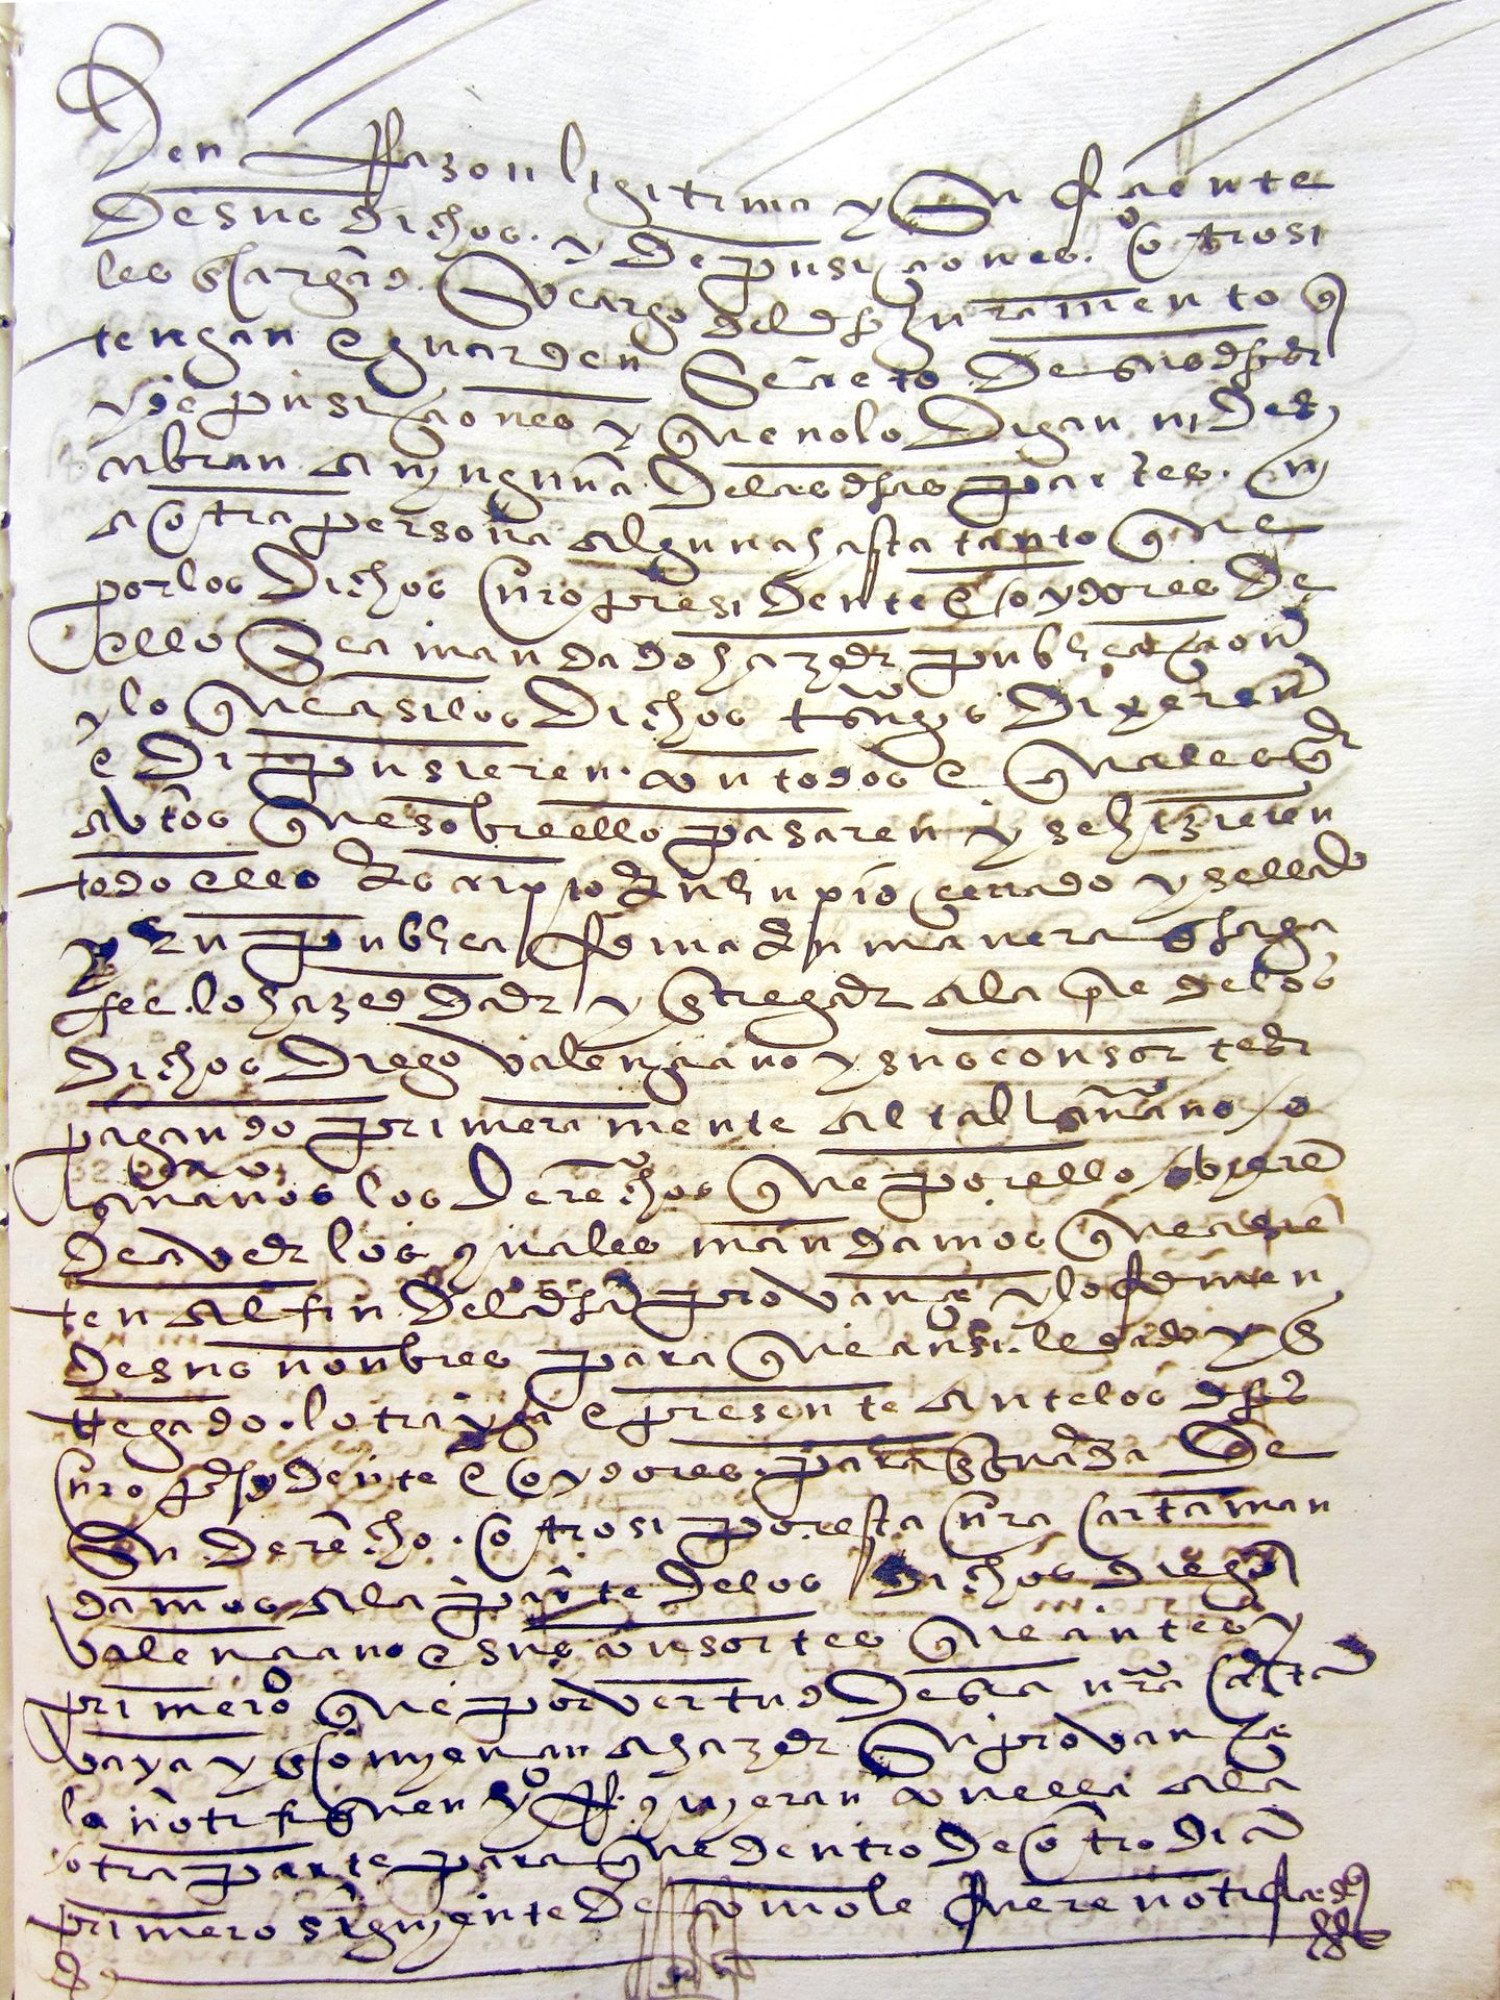 Den Razon ligitima y suficiente
de sus dichos y depusiciones otrosi
les encargad so cargo del dho juramento q
tengan e guarden secreto de sus dhos
y depusiciones y que no lo digan ni des
cubran a ninguna de las dhas partes ni
a otra persona alguna hasta tanto que
por los dichos nro presidente e oydores de
ello sea mandado hazer publicacion
y lo que asi los dichos tsgos dixeren
e dipusieren con todos e quales q
avtos que sobre ello pasaren y se hizieren
todo ello escripto en linpio cerrado y sellado
y en publica forma en manera q haga
fee lo hazed dar y entregar a la pte de los
dichos diego valenciano y sus consortes
pagando primeramente al tal escrivano o
escrivanos los derechos que por ello obieren
de aver los quales mandamos que asien
ten al fin de la dha provança y lo firmen
de sus nonbres para que ansi sacado y en
tregado lo trayga e presente ante los dhos
nro presydente e oydores para en guarda de
su derecho otrosi por esta nra carta man
damos a la parte de los dichos diego
valenciano e sus consortes que antes y
primero que por vertud desta nra carta
vaya y comiencen a hazer su provança
la notifiquen y Requieran con ella a la
otra parte para que dentro de otro dia
primero siguiente de como le fuere notificado